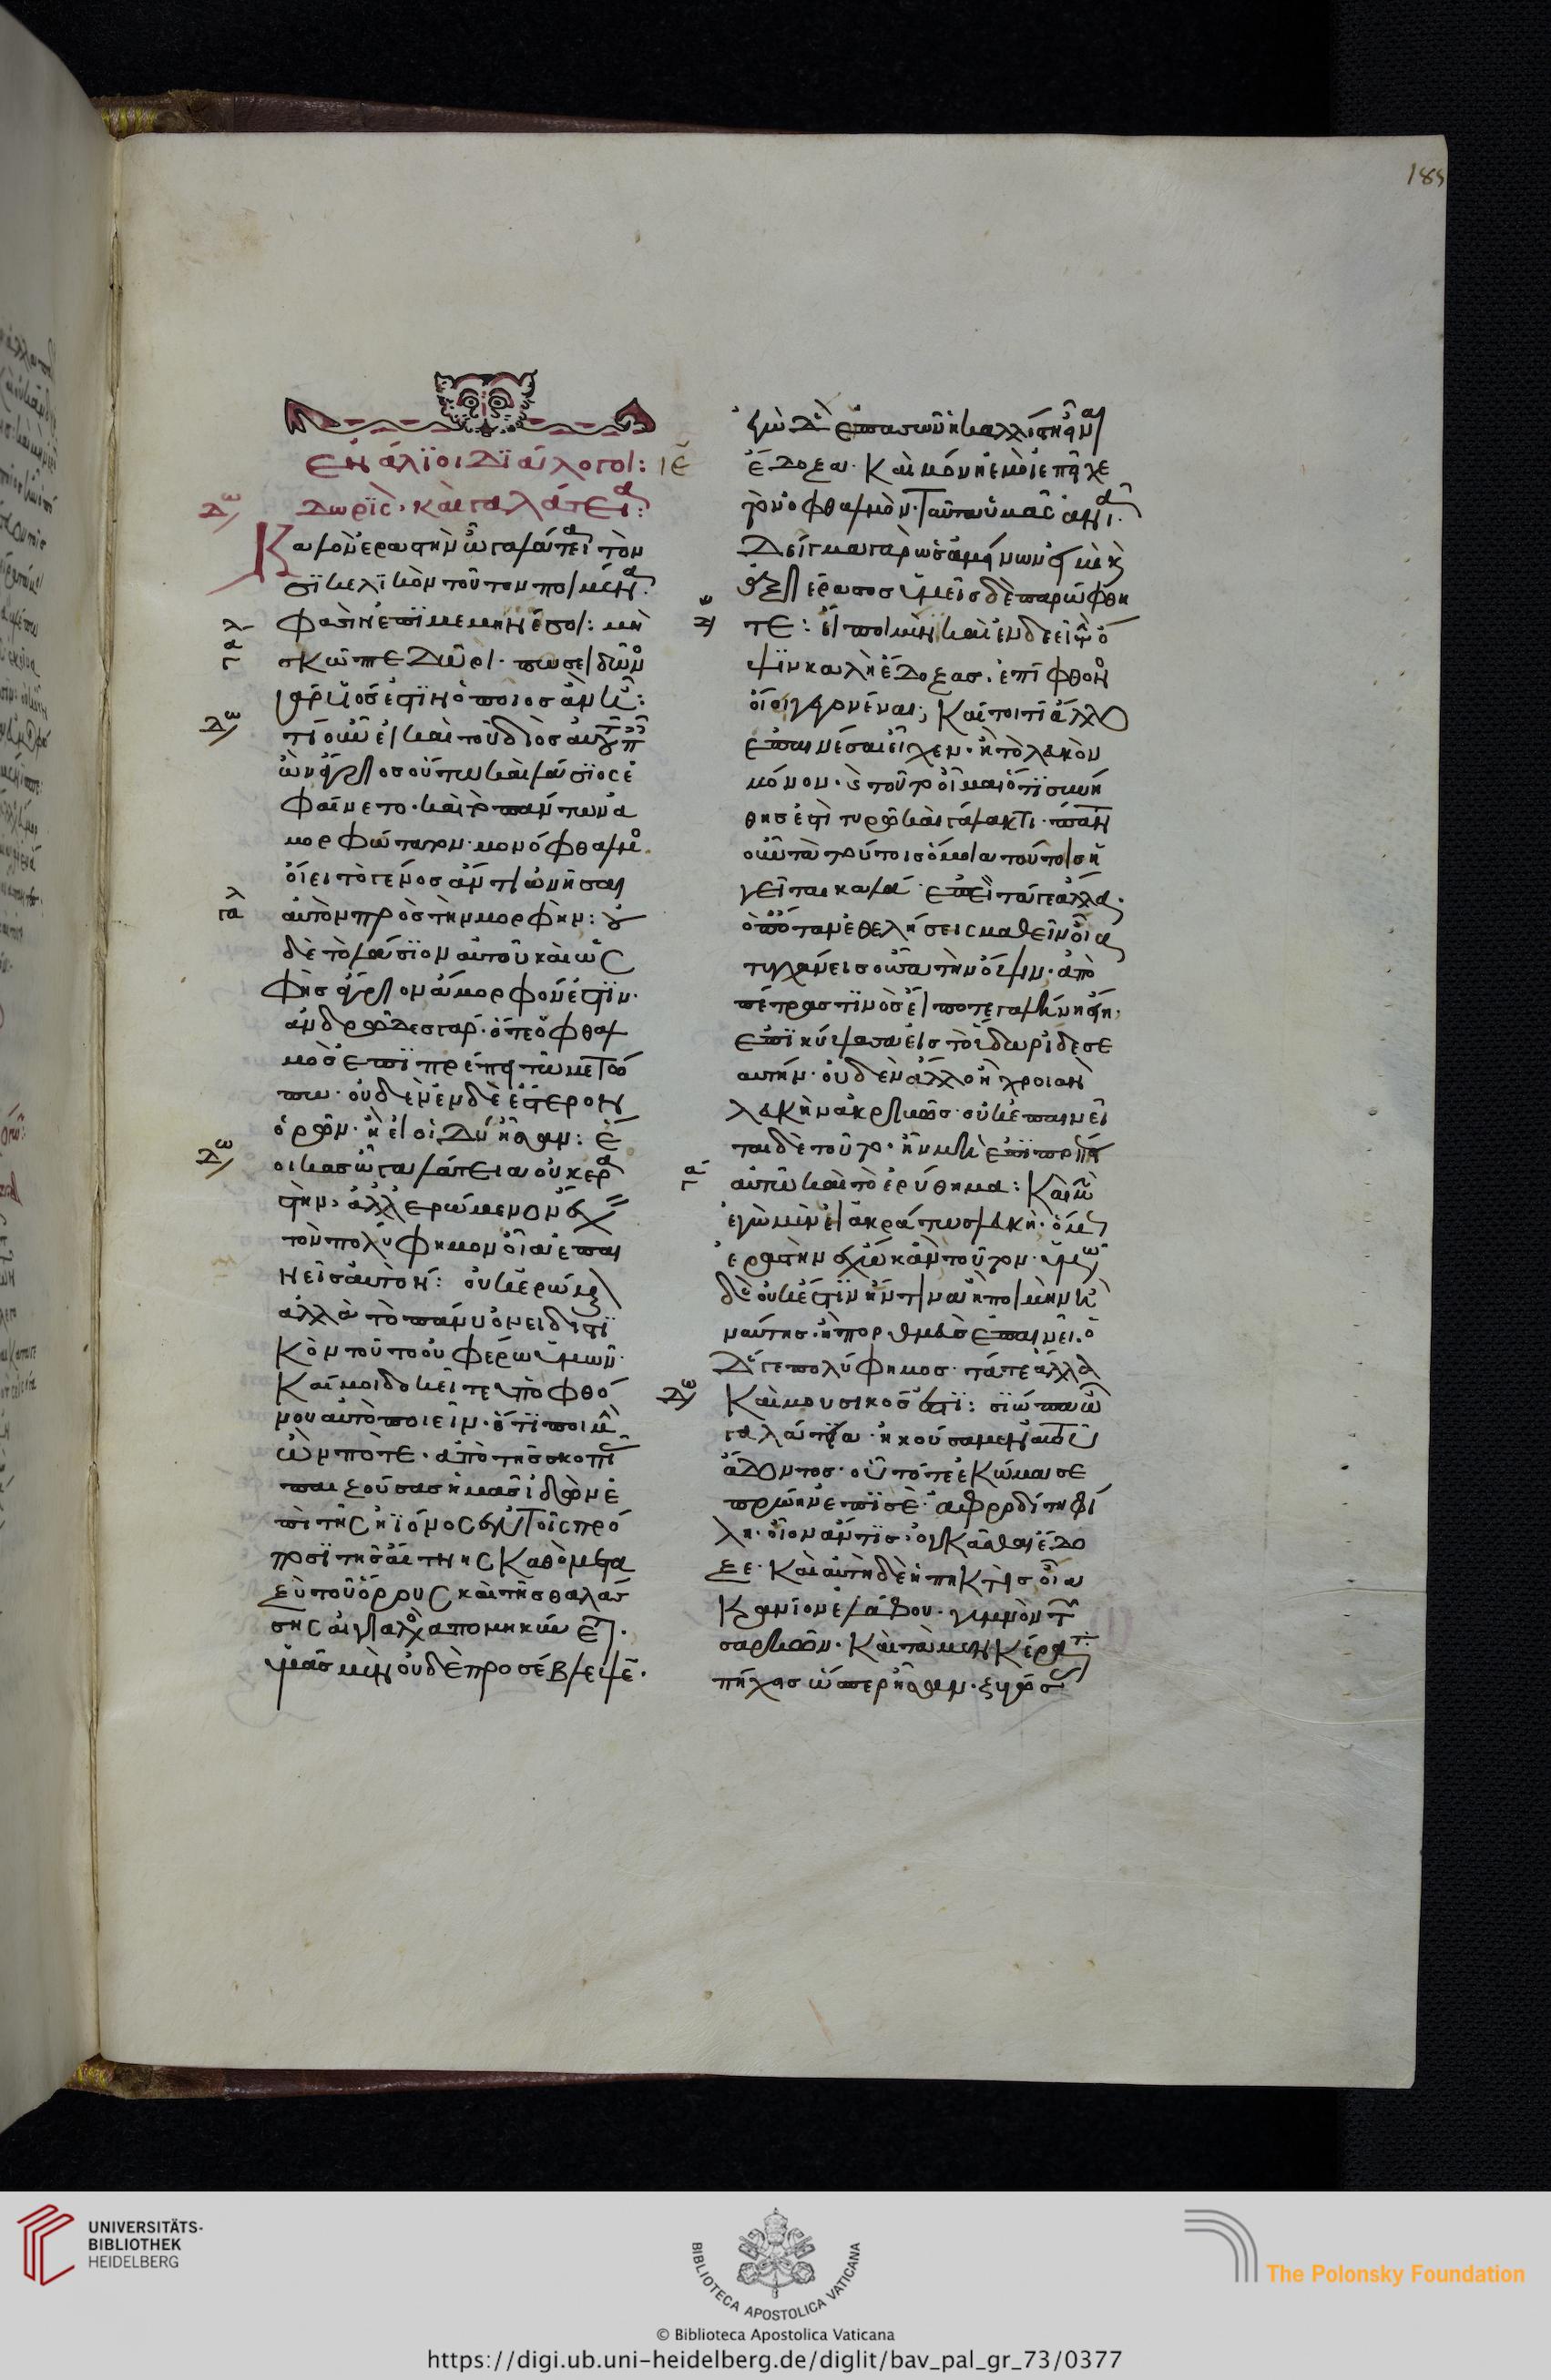 ἐνάλϊοι διάλογοι: ιε
Δω Δωρὶς καὶ Γαλάτεια:
Καλὸν ἐραστὴν ὦ γαλάτεια τὸν
σϊκελϊκὸν τοῦτον ποιμένα
φασὶν ἐπϊμεμηνέναι σοι: μὴ
γαλ σκῶπτε Δωρί· ποσειδῶνος
γὰρ υἱός ἐστϊν ὁποῖος ἂν ᾖ:
Δω τί οὖν εἰ καὶ τοῦ διὸς αὐτοῦ παῖς
ὢν ἄγριος οὕτω καὶ λάσϊος ἐ
φαίνετο· καὶ τὸ πάντων ἀ
μορφώτατον· μονόφθαλμος
οἴει τὸ γένος ἄν τι ὠνῆσαι
γαλ αὐτὸν πρὸς τὴν μορφήν: οὐ
δὲ τὸ λάσϊον αὐτοῦ καὶ ὡς
φῂς ἄγριον ἄμορφόν ἐστϊν·
ἀνδρῶδες γάρ· ὅ τε ὀφθαλ
μὸς ἐπϊπρέπει τῶ μετώ
πω· οὐδὲν ἐνδεέστερον
ὁρῶν· ἢ εἰ οἱ δύ ἦσαν: ἔ
Δω οικας ὦ γαλάτεια οὐκ ἐρα
στὴν, ἀλλ ἐρώμενον ἔχειν
τὸν πολύφημον οἷα ἐπαι
νεῖς αὐτόν: οὐκ ἐρώμενον
ἀλλὰ τὸ πάνυ ὀνειδιστϊ
κὸν τοῦτο οὐ φέρω ὑμῶν·
καί μοι δοκεῖτε ὑπὸ φθό
νου αὐτὸ ποιεῖν· ὅτϊ ποιμαί
νων ποτε· ἀπὸ τῆς σκοπιᾶς
παιζούσας ἡμᾶς ἰδὼν ἐ
πὶ τῆς ἠϊόνος ἐν τοῖς πρό
ποσϊ τῆς αἴτνης καθὸ μετα
ξὺ τοῦ ὄρους καὶ τῆς θαλάσ
σης αἰγιαλὸς ἀπομηκύνεται·
ὑμᾶς μὲν οὐδὲ προσέβλεψεν·
ἐγὼ δὲ ἐξ ἁπασῶν ἡ καλλίστη εἶναι
ἔδοξα· καὶ μόνη ἐμοὶ ἐπεῖχε
τὸν ὀφθαλμόν· ταῦτα ὑμᾶς ἀνιᾶ·
δεῖγμα γὰρ ὡς ἀμείνων εἰμὶ καὶ
ἀξιέραστος ὑμεῖς δὲ παρώφθη
Δω τε: εἰ ποιμένι καὶ ἐνδεεῖ τὴν ὄ
ψϊν καλὴ ἔδοξας, ἐπίφθονος
οἴει γεγονέναι; καίτοι τί ἄλλο
ἐπαινέσαι εἶχεν· ἢ τὸ λευκὸν
μόνον· καὶ τοῦτο οἶμαι ὅτϊ συνή
θης ἐστὶ τυρῶ καὶ γάλακτι· πάντα
οὖν τὰ τούτοις ὅμοια τούτοις ἡ
γεῖται καλά· ἐπεὶ τά γε ἄλλα·
ὁπόταν ἐθελήσεις μαθεῖν οἵα
τυγχάνεις οὖσα τὴν ὄψιν· ἀπὸ
πέτρας τϊνὸς εἴ ποτε γαλήνη εἴη·
ἐπϊκύψασα εἰς τὸ ὕδωρ ἰδὲ σε
αυτήν· οὐδὲν ἄλλο ἢ χροιὰν
λευκὴν ἀκριβῶς· οὐκ ἐπαινεῖ
ται δὲ τοῦτο· ἢν μὴ ἐπϊπρέπη
γα αὐτῶ καὶ τὸ ἐρύθημα: καὶ μὴν
ἐγὼ μὲν ἡ ἀκράτως λευκὴ· ὅμως
ἐραστὴν ἔχω κἂν τοῦτον· ὑμῶν
δὲ οὐκ ἔστϊν ἥντινα ἢ ποιμὴν ἢ
ναύτης· ἢ πορθμεὺς ἐπαινεῖ· ὁ
δέ γε πολύφημος τά τε ἄλλα
Δω καὶ μουσικός ἐστϊ: σϊώπα ὦ
γαλάτεια· ἠκούσαμεν αὐτοῦ
ἄδοντος· ὁπότε ἐκώμασε
πρώην ἐπϊ σέ· ἀφροδίτη φί
λη· ὄνον ἄν τϊς ὀγκᾶσθαι ἔδο
ξε· καὶ αὐτὴ δὲ ἡ πηκτὶς οἵα
κρανίον ἐλάφου· γυμνὸν τῶν
σαρκῶν· καὶ τὰ μὲν κέρατα
πήχεις ὥσπερ ἦσαν· ζυγώσας
189
UNIVERSITÄTS-
BIBLIOTHEK
HEIDELBERG
BIBLIOTECA APOSTOLICA VATICANA
The Polonsky Foundation
© Biblioteca Apostolica Vaticana
https://digi.ub.uni-heidelberg.de/diglit/bav_pal_gr_73/0377